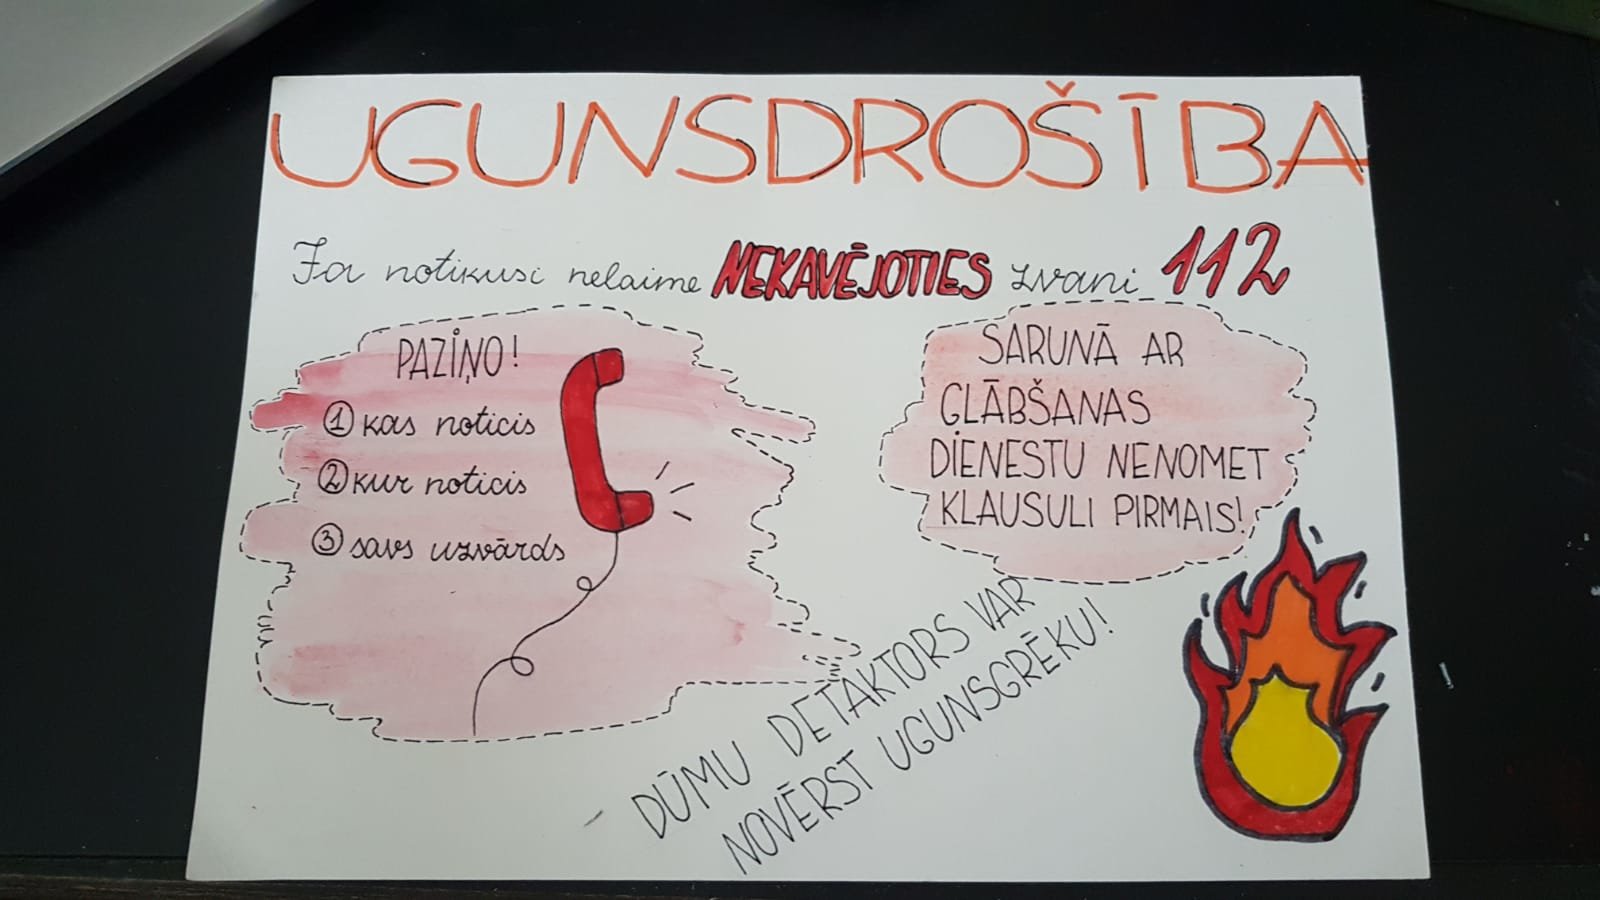 UGUNSDROŠĪBA
Ja notikusi nelaime NEKAVĒJOTIES zvani 112
PAZIŅO!
1 kas noticis
2 kur noticis
3 savs uzvārds
SARUNĀ AR
GLĀBŠANAS
DIENESTU NENOMET
KLAUSULI PIRMAIS!
DŪMU DETAKTORS VAR
NOVĒRST UGUNSGRĒKU!